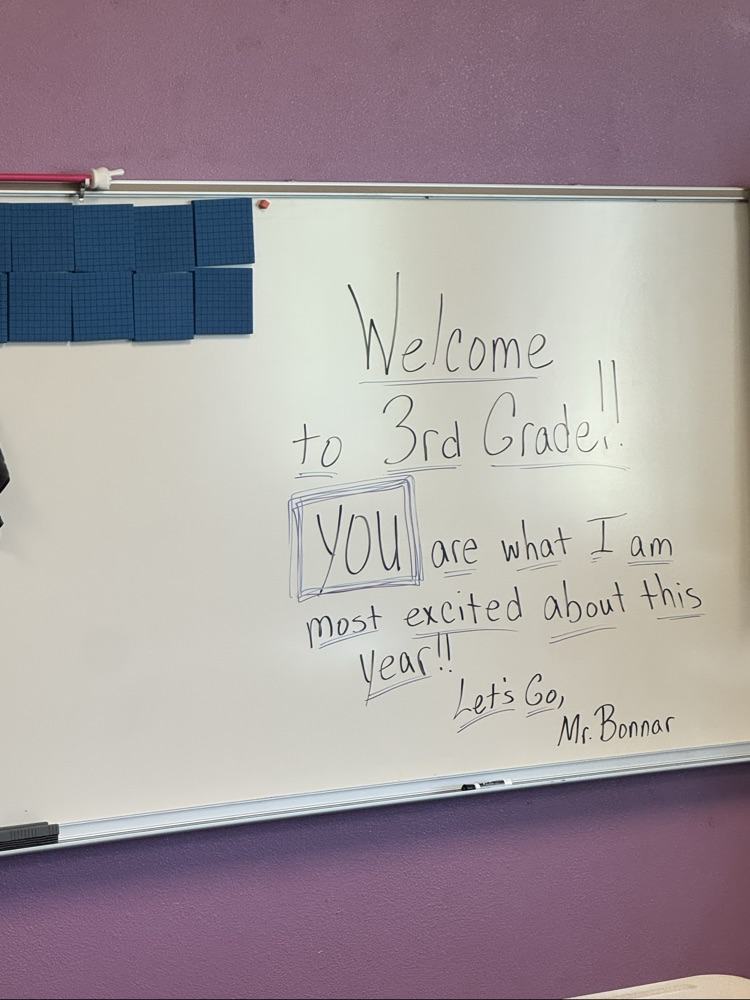 Welcome
to 3rd Grade!!
YOU are what I am
most excited about this
year!!
Let's Go,
Mr. Bonnar